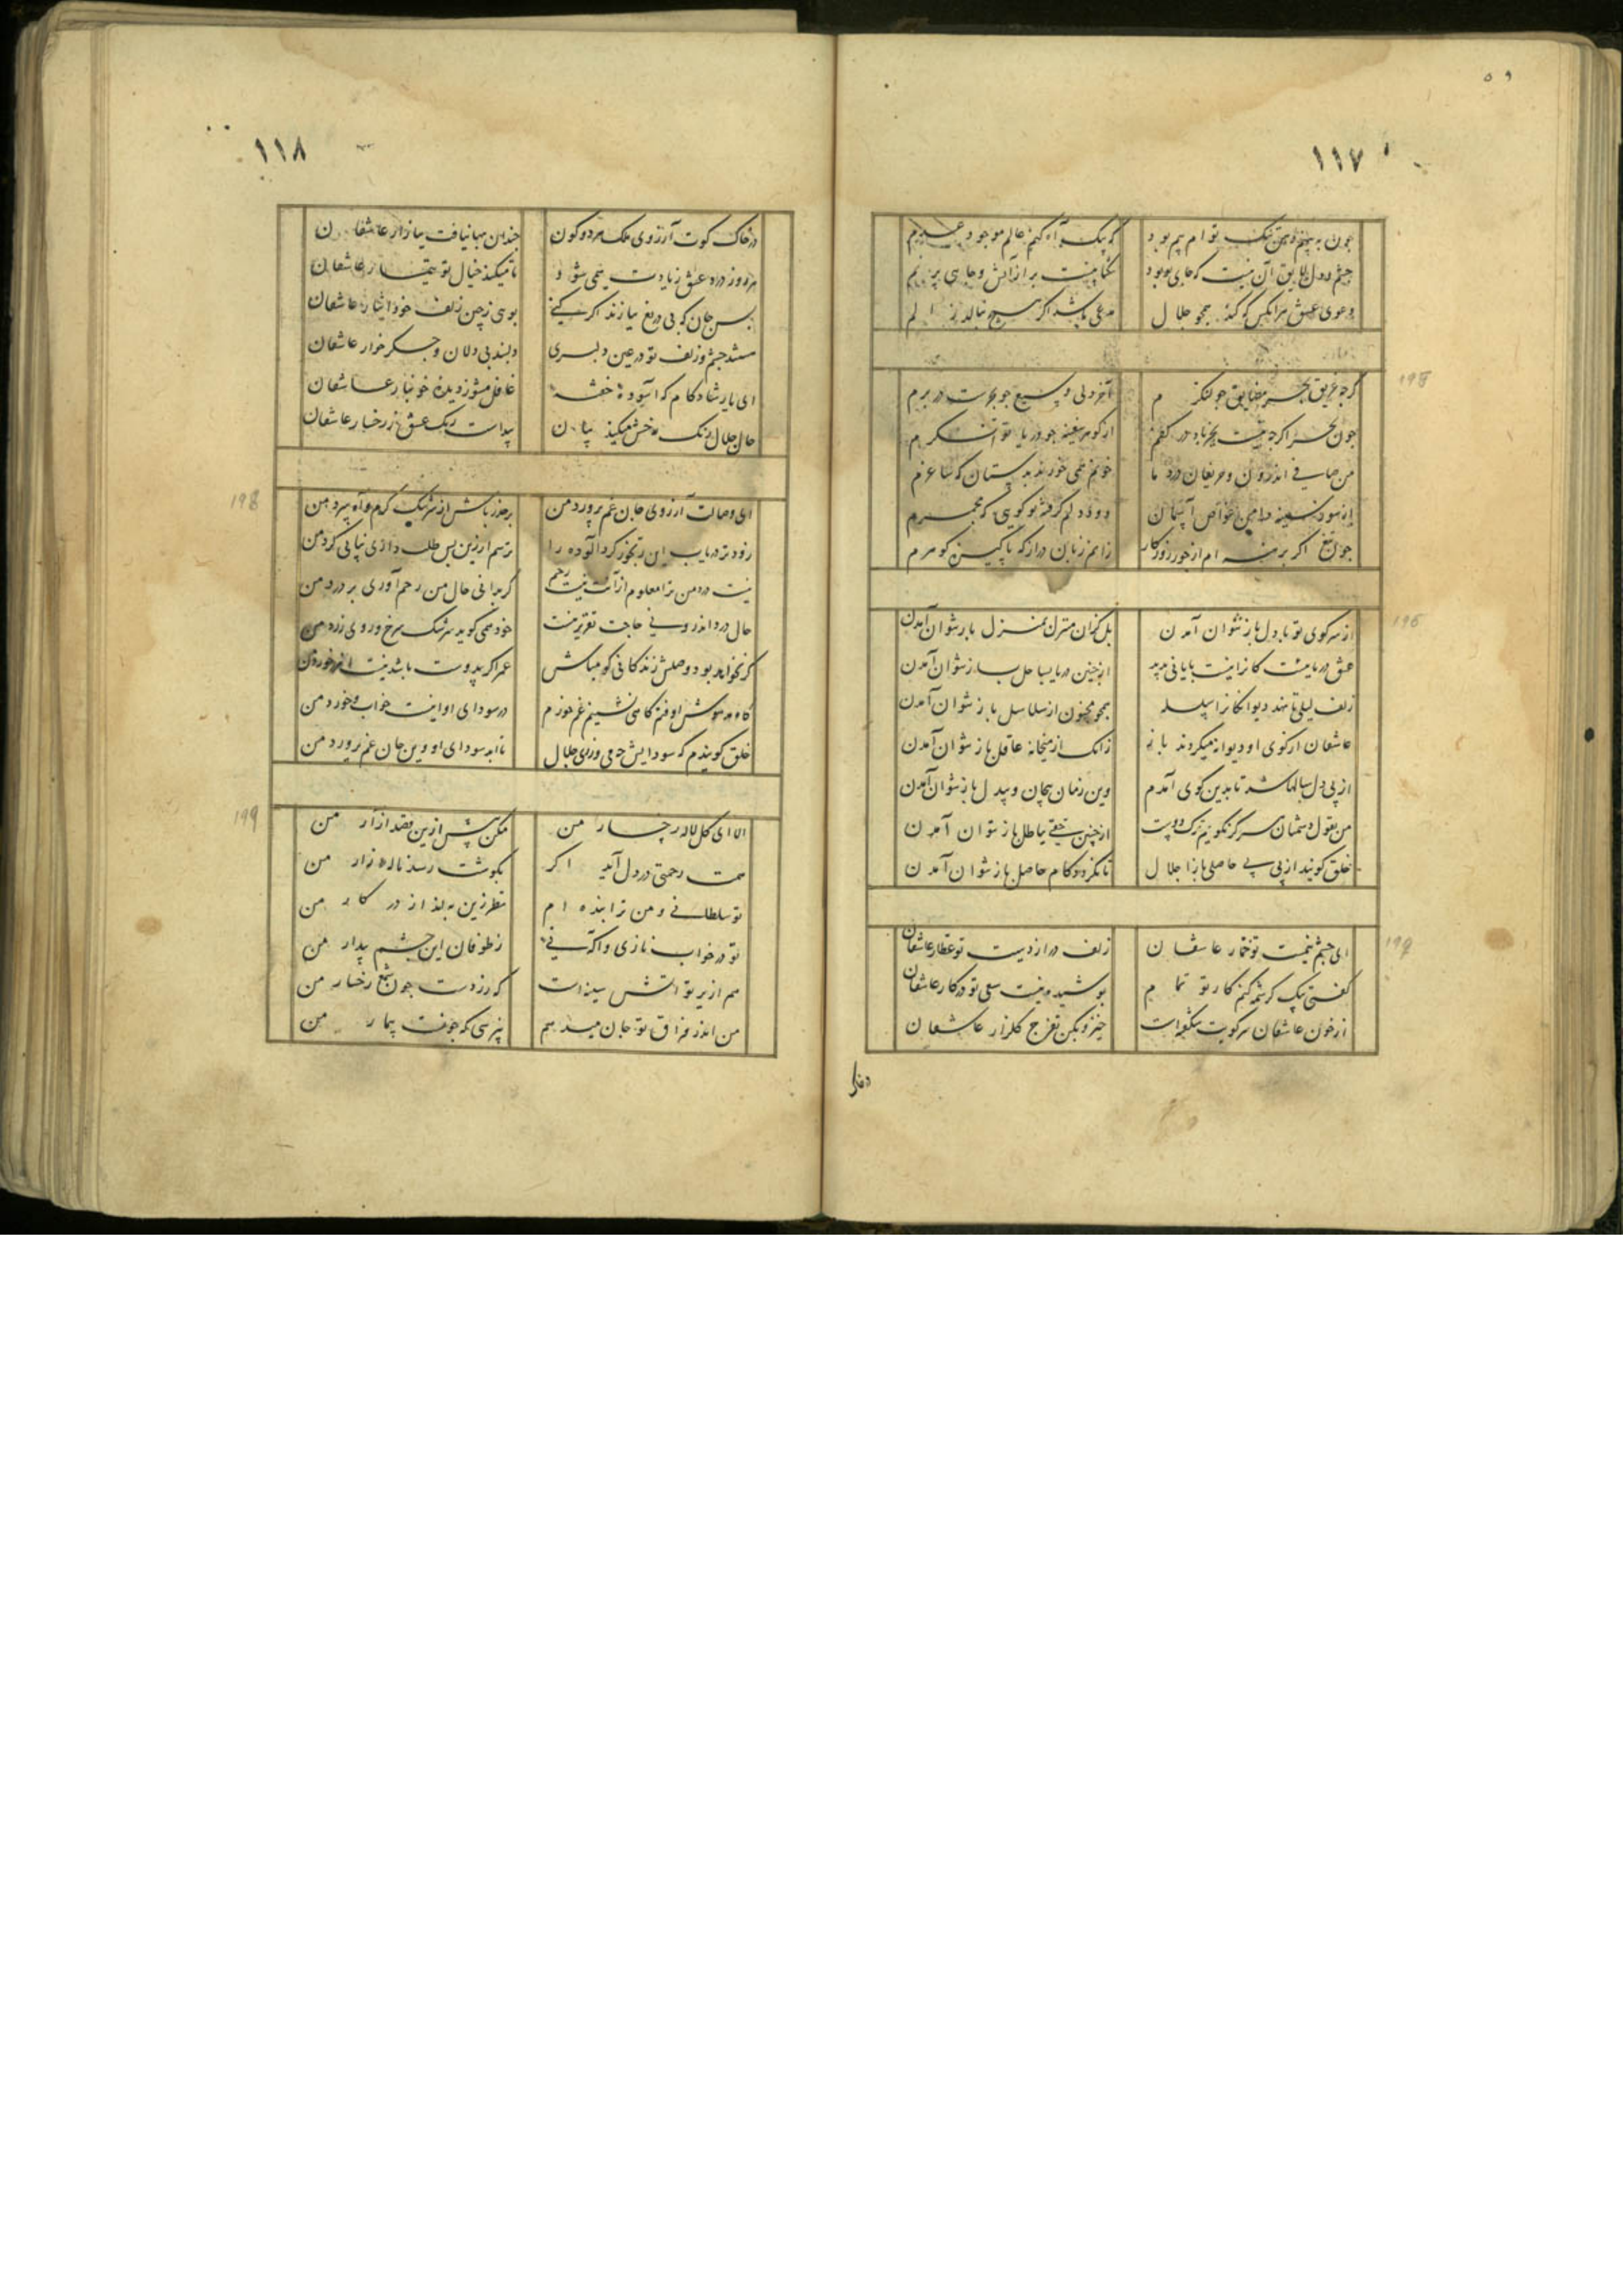 ۱۱۷
چون به بینم دهن تنک توام بیم بود
که بیک آه کنم عالم موجود عدم
چشم و دل لایق آن نیست که جای تو بود
دعوی عشق هر انکس که کند همجو جلال
مدعی باشد اکر هیچ بنالد ز الم
195
کرچه غریق بحر
آخر دلی وسیع جو بحرست در برم
چون بحر اکر چه نیست بجز باد در کفم
از کوهر سفینه چو دریا توانکرم
من صافی اندرون و حریفان درد ما
خونم همی خورند بدستان که ساغرم
دودم کرفته بو کویی که مجمرم
چون تیغ اکر برهنه ام از جور روزکار
زانم زبان دراز که پاکیزه کوهرم
196
از سر کوی تو با دل باز نتوان آمدن
بل کزان منزل بمنزل باز نتوان آمدن
عشق دریائیست کانرا نیست پایانی پدید
از چنین دریا بساحل باز نتوان آمدن
زلف لیلی تا نهد دیوانکانرا سلسله
همجو مجنون از سلاسل باز نتوان آمدن
عاشقان از کوی او دیوانه میکردند باز
زانک از میخانه عاقل باز نتوان آمدن
از پی دل سالها شد تا بدین کوی آمدم
وین زمان بیجان و بیدل باز نتوان آمدن
من بقول دشمنان هرکز نکویم ترک دوست
از چنین حقی بباطل باز نتوان آمدن
خلق کویند از پی بی حاصلی باز آ جلال
تا نکردد کام حاصل باز نتوان آمدن
197
ای چشم نیمست تو خمار عاشقان
زلف دراز دست تو عطار عاشقان
کفتی بیک کرشمه کنم کار تو تمام
پوشیده نیست سعی تو در کار عاشقان
از خون عاشقان سر کویت شکفته است
خیز و بکن تفرج کلزار عاشقان
درخاک
۱۱۸
در خاک کوت آرزوی ملک هر دو کون
چندان بها نیافت ببازار عاشقان
هر روز درد عشق زیادت همی شود
تا میکند خیال تو تیمار عاشقان
بس جان که بی دریغ نیازند اکر کنی
بوی ز چین زلف خود ایثار عاشقان
مستند چشم و زلف تو در عین دلبری
دلبند بی دلان و جکرخوار عاشقان
ای یار شادکام که آسوده خفته
غافل مشو ز دیده خونبار عاشقان
حال جلال رنک رخش میکند بیان
پیداست رنک عشق ز رخسار عاشقان
198
ای وصالت آرزوی جان غم پرورد من
بر حذر باش از سرشک کرم و آه سرد من
زودتر دریاب این رنجور کردآلوده را
ترسم ار زین پس طلب داری نیابی کرد من
نیست درد من ترا معلوم از آنت نیست رحم
کر بدانی حال من رحم آوری بر درد من
حال درد اندرونی حاجت تقریر نیست
خود همی کوید سرشک سرخ و روی زرد من
کر نخواهد بود وصلش زندکانی کو مباش
عمر اکر بی دوست باشد نیست اندر خورد من
کاه مدهوش اوفتم کاهی نشینم غم خورم
در سودای او اینست خواب و خورد من
خلق کویندم که سودایش چه می ورزی جلال
تا ابد سودای او وین جان غم پرورد من
199
الا ای کل لاله رخسار من
مکن بیش ازین قصد آزار من
همت رحمتی در دل آید اکر
بکوشت رسد ناله زار من
تو سلطانی و من ترا بنده ام
نظر زین به انداز در کار من
تو در خواب نازی و آکه نی
ز طوفان این چشم بیدار من
هم از پرتو آتش سینه است
که زردست چون شمع رخسار من
من اندر فراق تو جان میدهم
نپرسی که چونست بیمار من